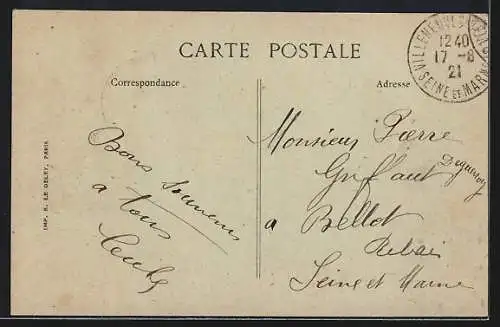 CARTE POSTALE
Correspondance
Adresse
12 40
17 - 8
21
SEINE ET MARNE
IMP. E. LE DELEY, PARIS
Bons Souvenirs
à tous
Monsieur Pierre
Griffaut
a Bellot
Rebais
Seine et Marne